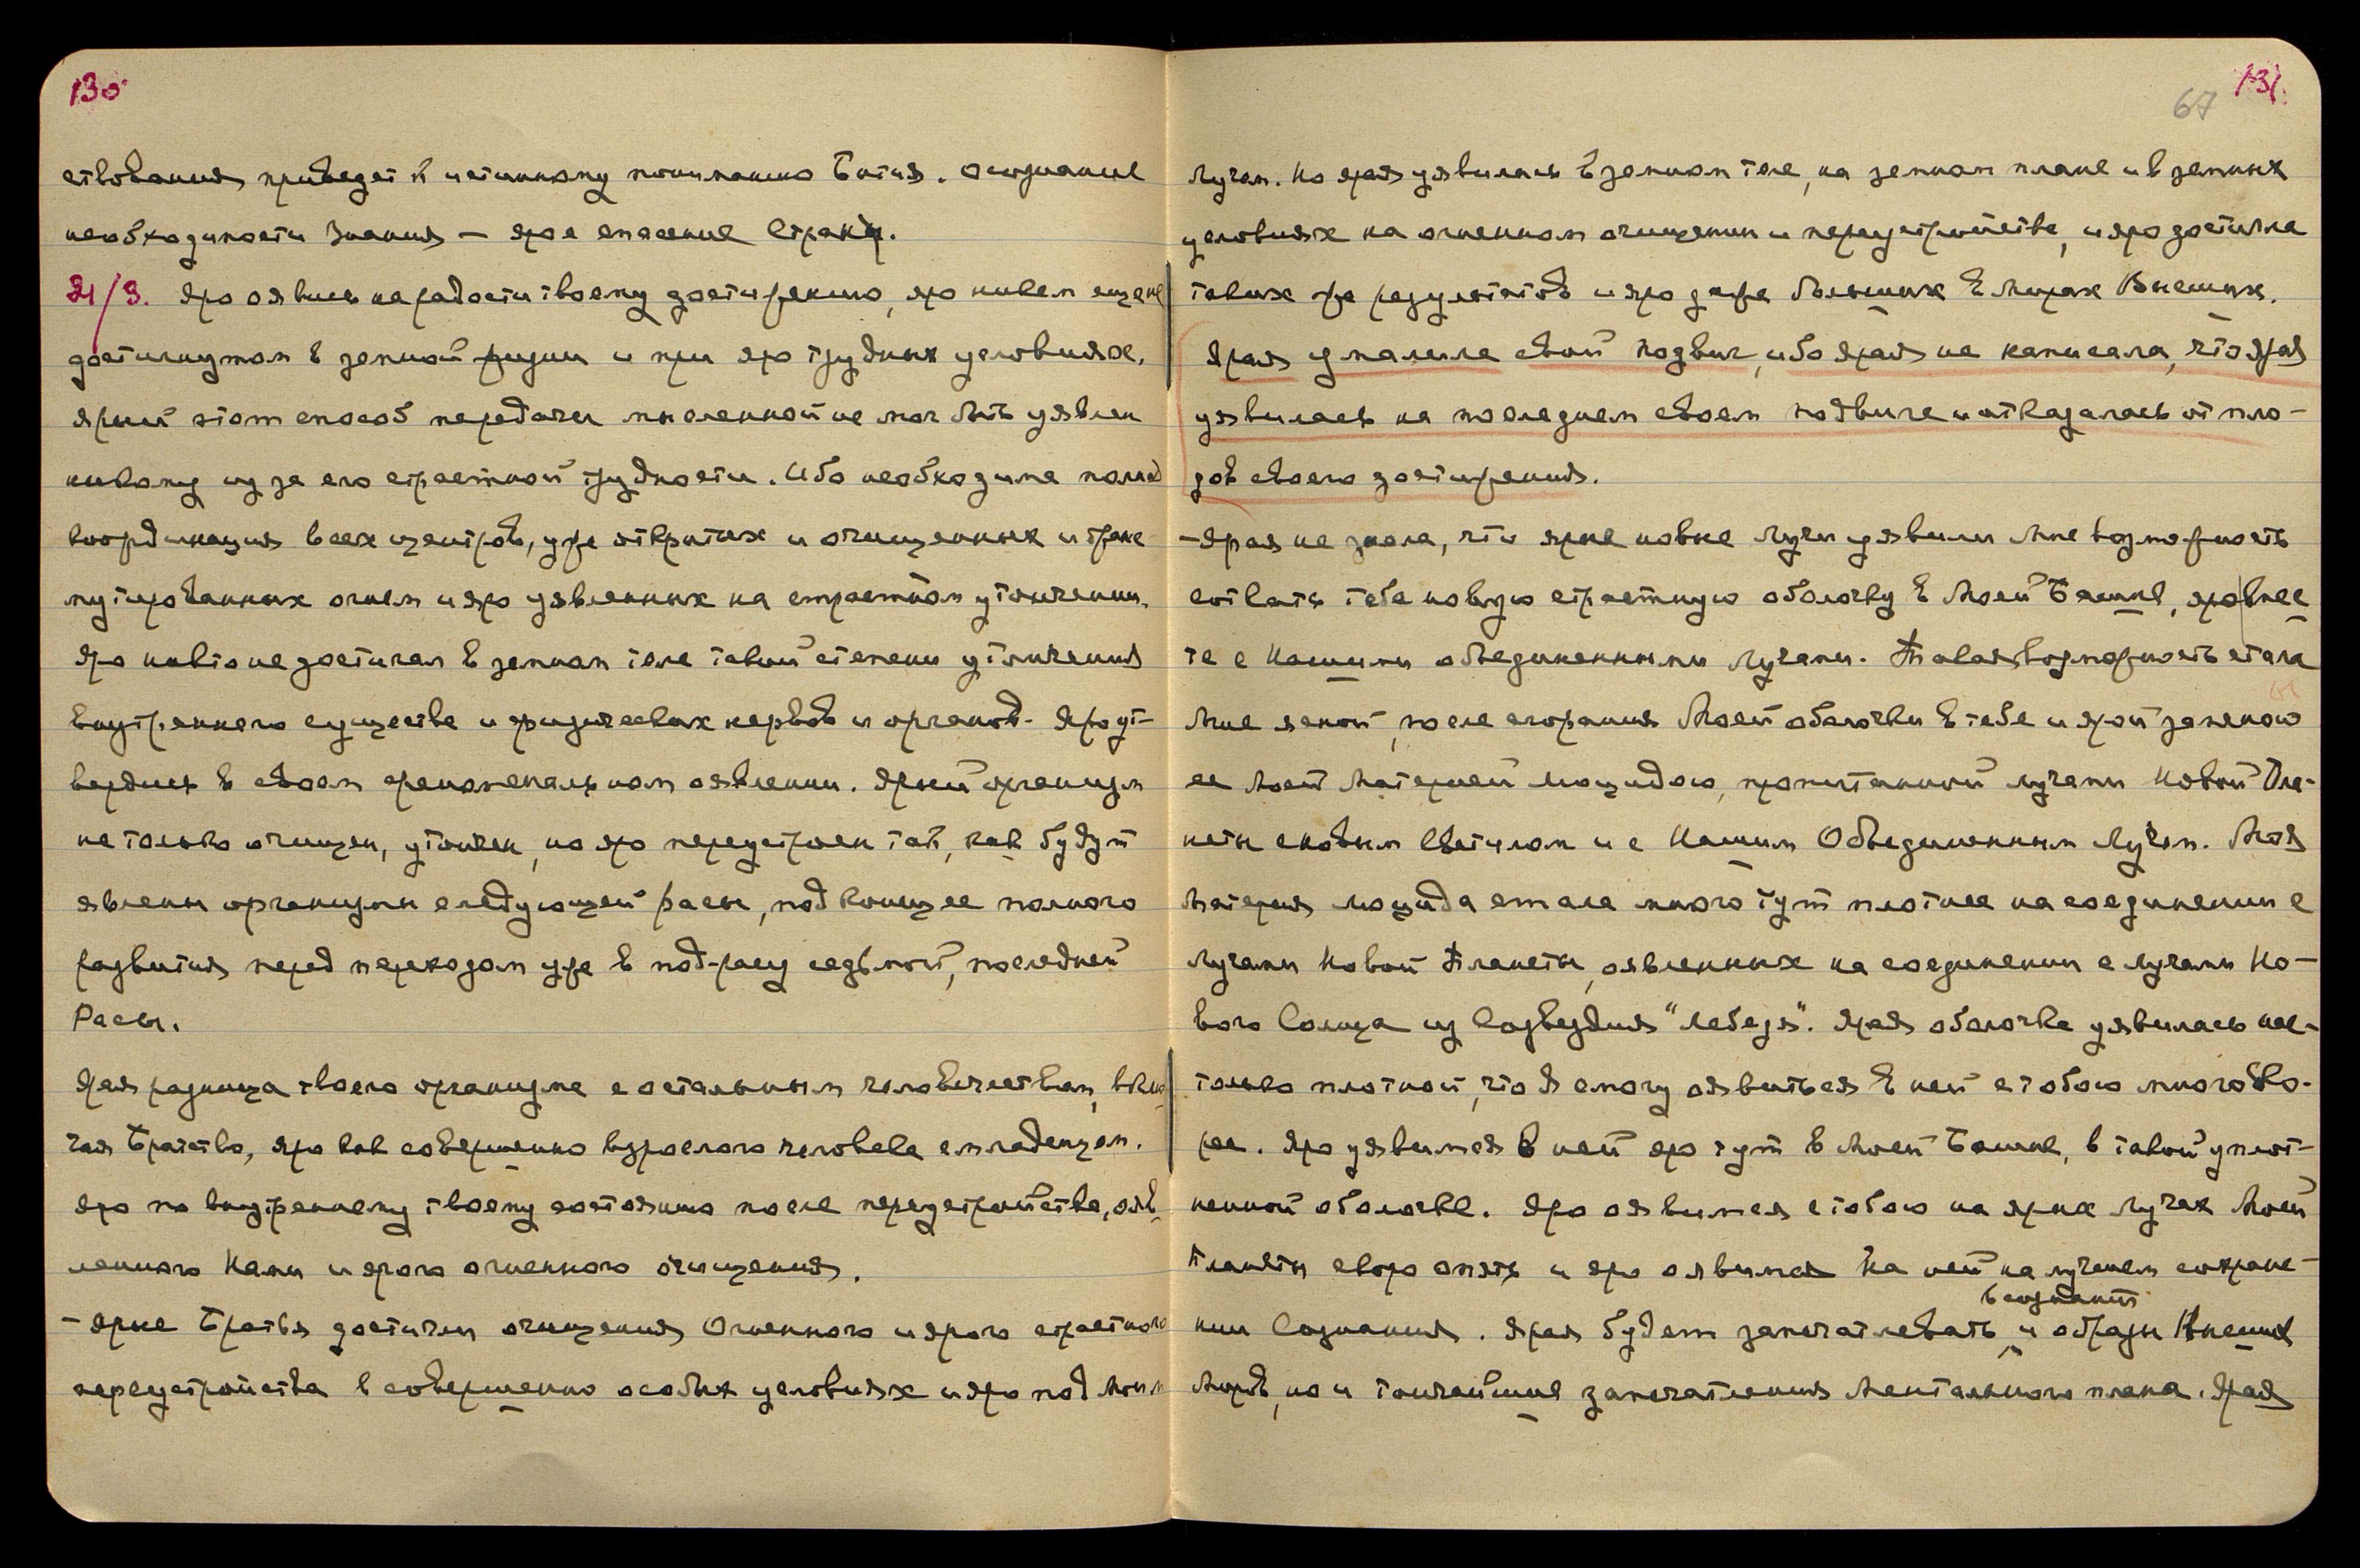 130
ствования приведет к истинному пониманию Бытия. Осознание
необходимости Знания — ярое спасение Страны.
21/3. Яро оявись на радости твоему достижению, яро никем еще не
достигнутом в земной жизни и при яро трудных условиях.
Ярый этот способ передачи мысленной не мог быть уявлен
никому из за его страстной трудности. Ибо необходима полная
координация всех центров, уже открытых и очищенных и транс
мутированных огнем и яро уявленных на страстном утончении.
Яро никто не достигал в земном теле такой степени утончения
внутреннего существа и физических нервов и органов. Яро ут-
вердись в своем феноменальном оявлении. Ярый организм
не только очищен, утончен, но яро переустроен так, как будут
явлены организмы следующей расы, под конец ее полного
развития перед переходом уже в под-расу седьмой, последней
Расы.
Ярая разница твоего организма с остальным человечеством, вклю
чая Братство, яро как совершенно взрослого человека с младенцем.
Яро по внутреннему твоему состоянию после переустройства, явл
ленного Нами и ярого огненного очищения.
— Ярые Братья достигли очищения Огненного и ярого страстного
переустройства в совершенно особых условиях и яро под Моим
131.
67
Лучам. Но ярая уявилась в земном теле, на земном плане и в земных
условиях на огненном очищении и переустройстве, и яро достигла
таких же результатов и яро даже больших в Мирах Высших.
Ярая умалила свой подвиг, ибо ярая не написала, что ярая
уявилась на последнем своем подвиге и отказалась от пло-
дов своего достижения.
— Ярая не знала, что ярые новые Лучи уявили Мне возможность
соткать тебе новую страстную оболочку в Моей Башне, яро вмес
те с Нашими объединенными Лучами. Такая возможность стала
Мне ясной, после сгорания Моей оболочки в тебе и ярой заменою
ее Моей Материей Люцидою, пропитанной лучами Новой Пла-
неты с новым Светилом и с Нашим Объединенным Лучом. Моя
Материя Люцида стала много тут плотнее на соединении с
Лучами Новой Планеты, оявленных на соединении с лучами Но-
вого Солнца из Созвездия "Лебедя". Ярая оболочка уявилась нас-
только плотной, что Я смогу оявиться в ней с тобою много ско-
рее. Яро уявимся в ней яро тут в Моей Башне, в такой уплот-
ненной оболочке. Яро оявимся с тобою на ярых Лучах Моей
Планеты скоро опять и яро оявимся на ней на лучшем сохране-
нии Сознания. Ярая будет запечатлевать в сознании и образы Высших
Миров, но и тончайшие запечатления Ментального плана. Ярая